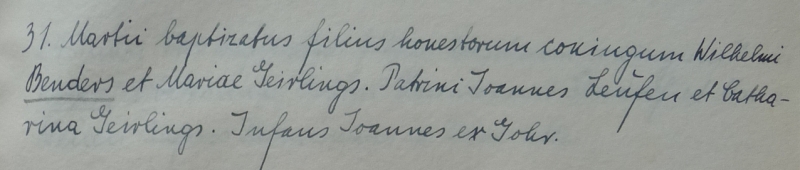 31. Martii baptizatus filius honestorum coniugum Wilhelmi
Benders et Mariae Geirlings. Patrini Joannes Leufen et Catha-
rina Geirlings. Infans Joannes ex Gohr.